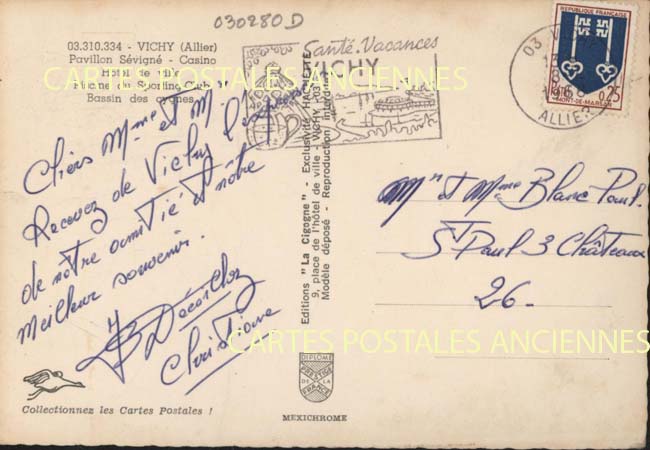 030280D
03.310.334 - VICHY (Allier)
Pavillon Sévigné - Casino
Hôtel de ville
Piscine du Sporting Club
Bassin des cygnes
CARTES POSTALES ANCIENNES
Santé. Vacances
VICHY
03 V
13
1968
ALLIER
REPUBLIQUE FRANÇAISE
0,25
POSTES
MONT-DE-MARSAN
Chers Mme et M.
Recevez de Vichy l'expression
de notre amitié et notre
meilleur souvenir.
Christiane
Editions "La Cigogne" - Exclusivité HACHETTE
9, place de l'hôtel de ville - VICHY - 03
Modèle déposé - Reproduction interdite
Mr et Mme Blanc Paul.
St Paul 3 Châteaux
26.
CARTES POSTALES ANCIENNES
DIPLOME
PRESTIGE
DE LA
FRANCE
Collectionnez les Cartes Postales !
MEXICHROME